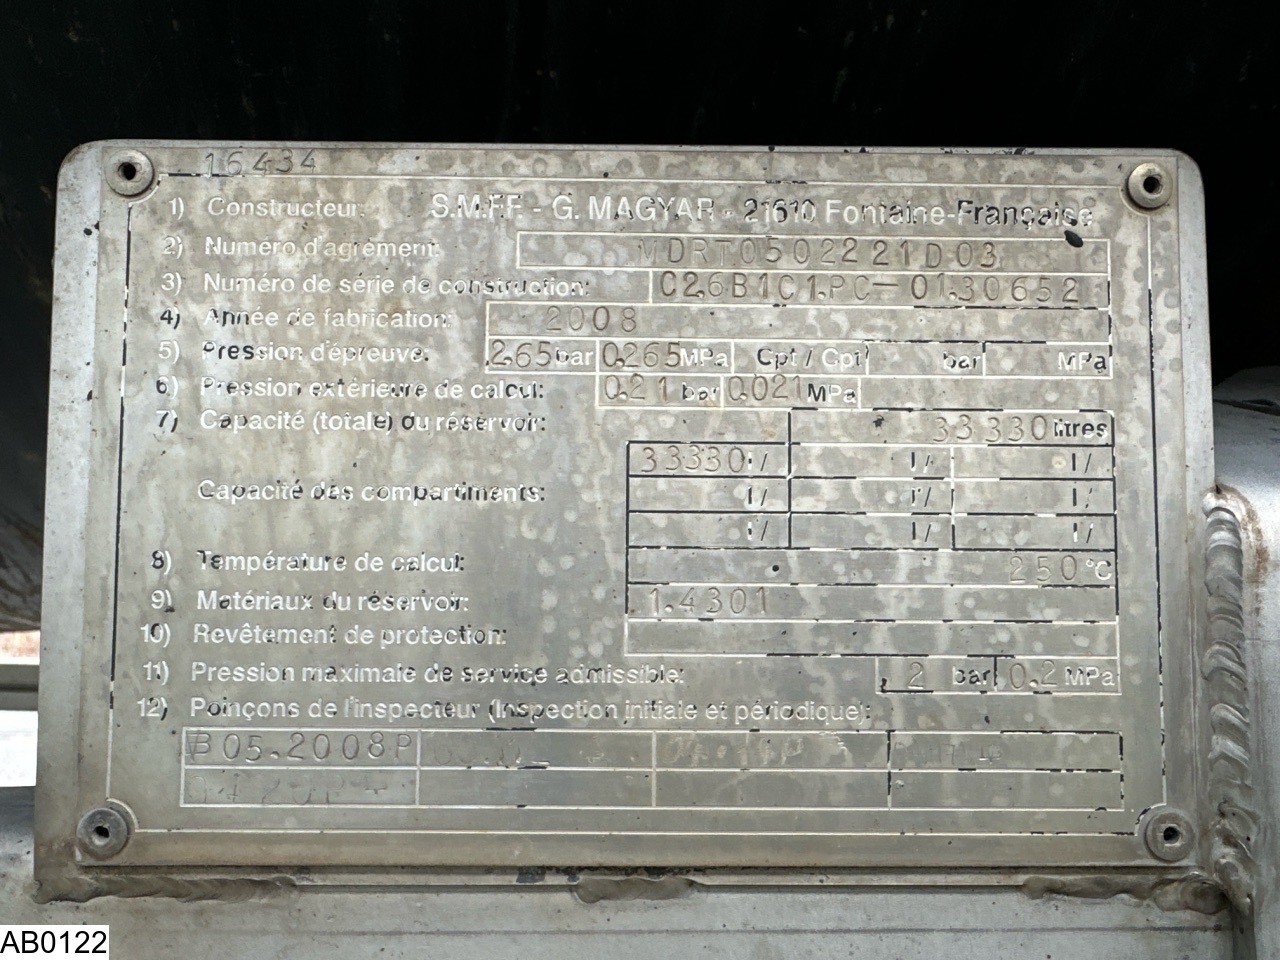 16.434
1) Constructeur: S.M.F.F. - G. MAGYAR - 21610 Fontaine-Française
2) Numéro d'agrément: MDRT0502221D03
3) Numéro de série de construction: C26B1C1.PC-01.30652
4) Année de fabrication: 2008
5) Pression d'épreuve: 2.65 bar 0.265 MPa Cpt / Cpt bar MPa
6) Pression extérieure de calcul: 0.21 bar 0.021 MPa
7) Capacité (totale) du réservoir: 33330 litres
33330 1/ 1/ 1/
Capacité des compartiments: 1/ 1/ 1/
1/ 1/ 1/
8) Température de calcul: 250 °C
9) Matériaux du réservoir: 1.4301
10) Revêtement de protection:
11) Pression maximale de service admissible: 2 bar 0.2 MPa
12) Poinçons de l'inspecteur (Inspection initiale et périodique):
05.2008P
AB0122